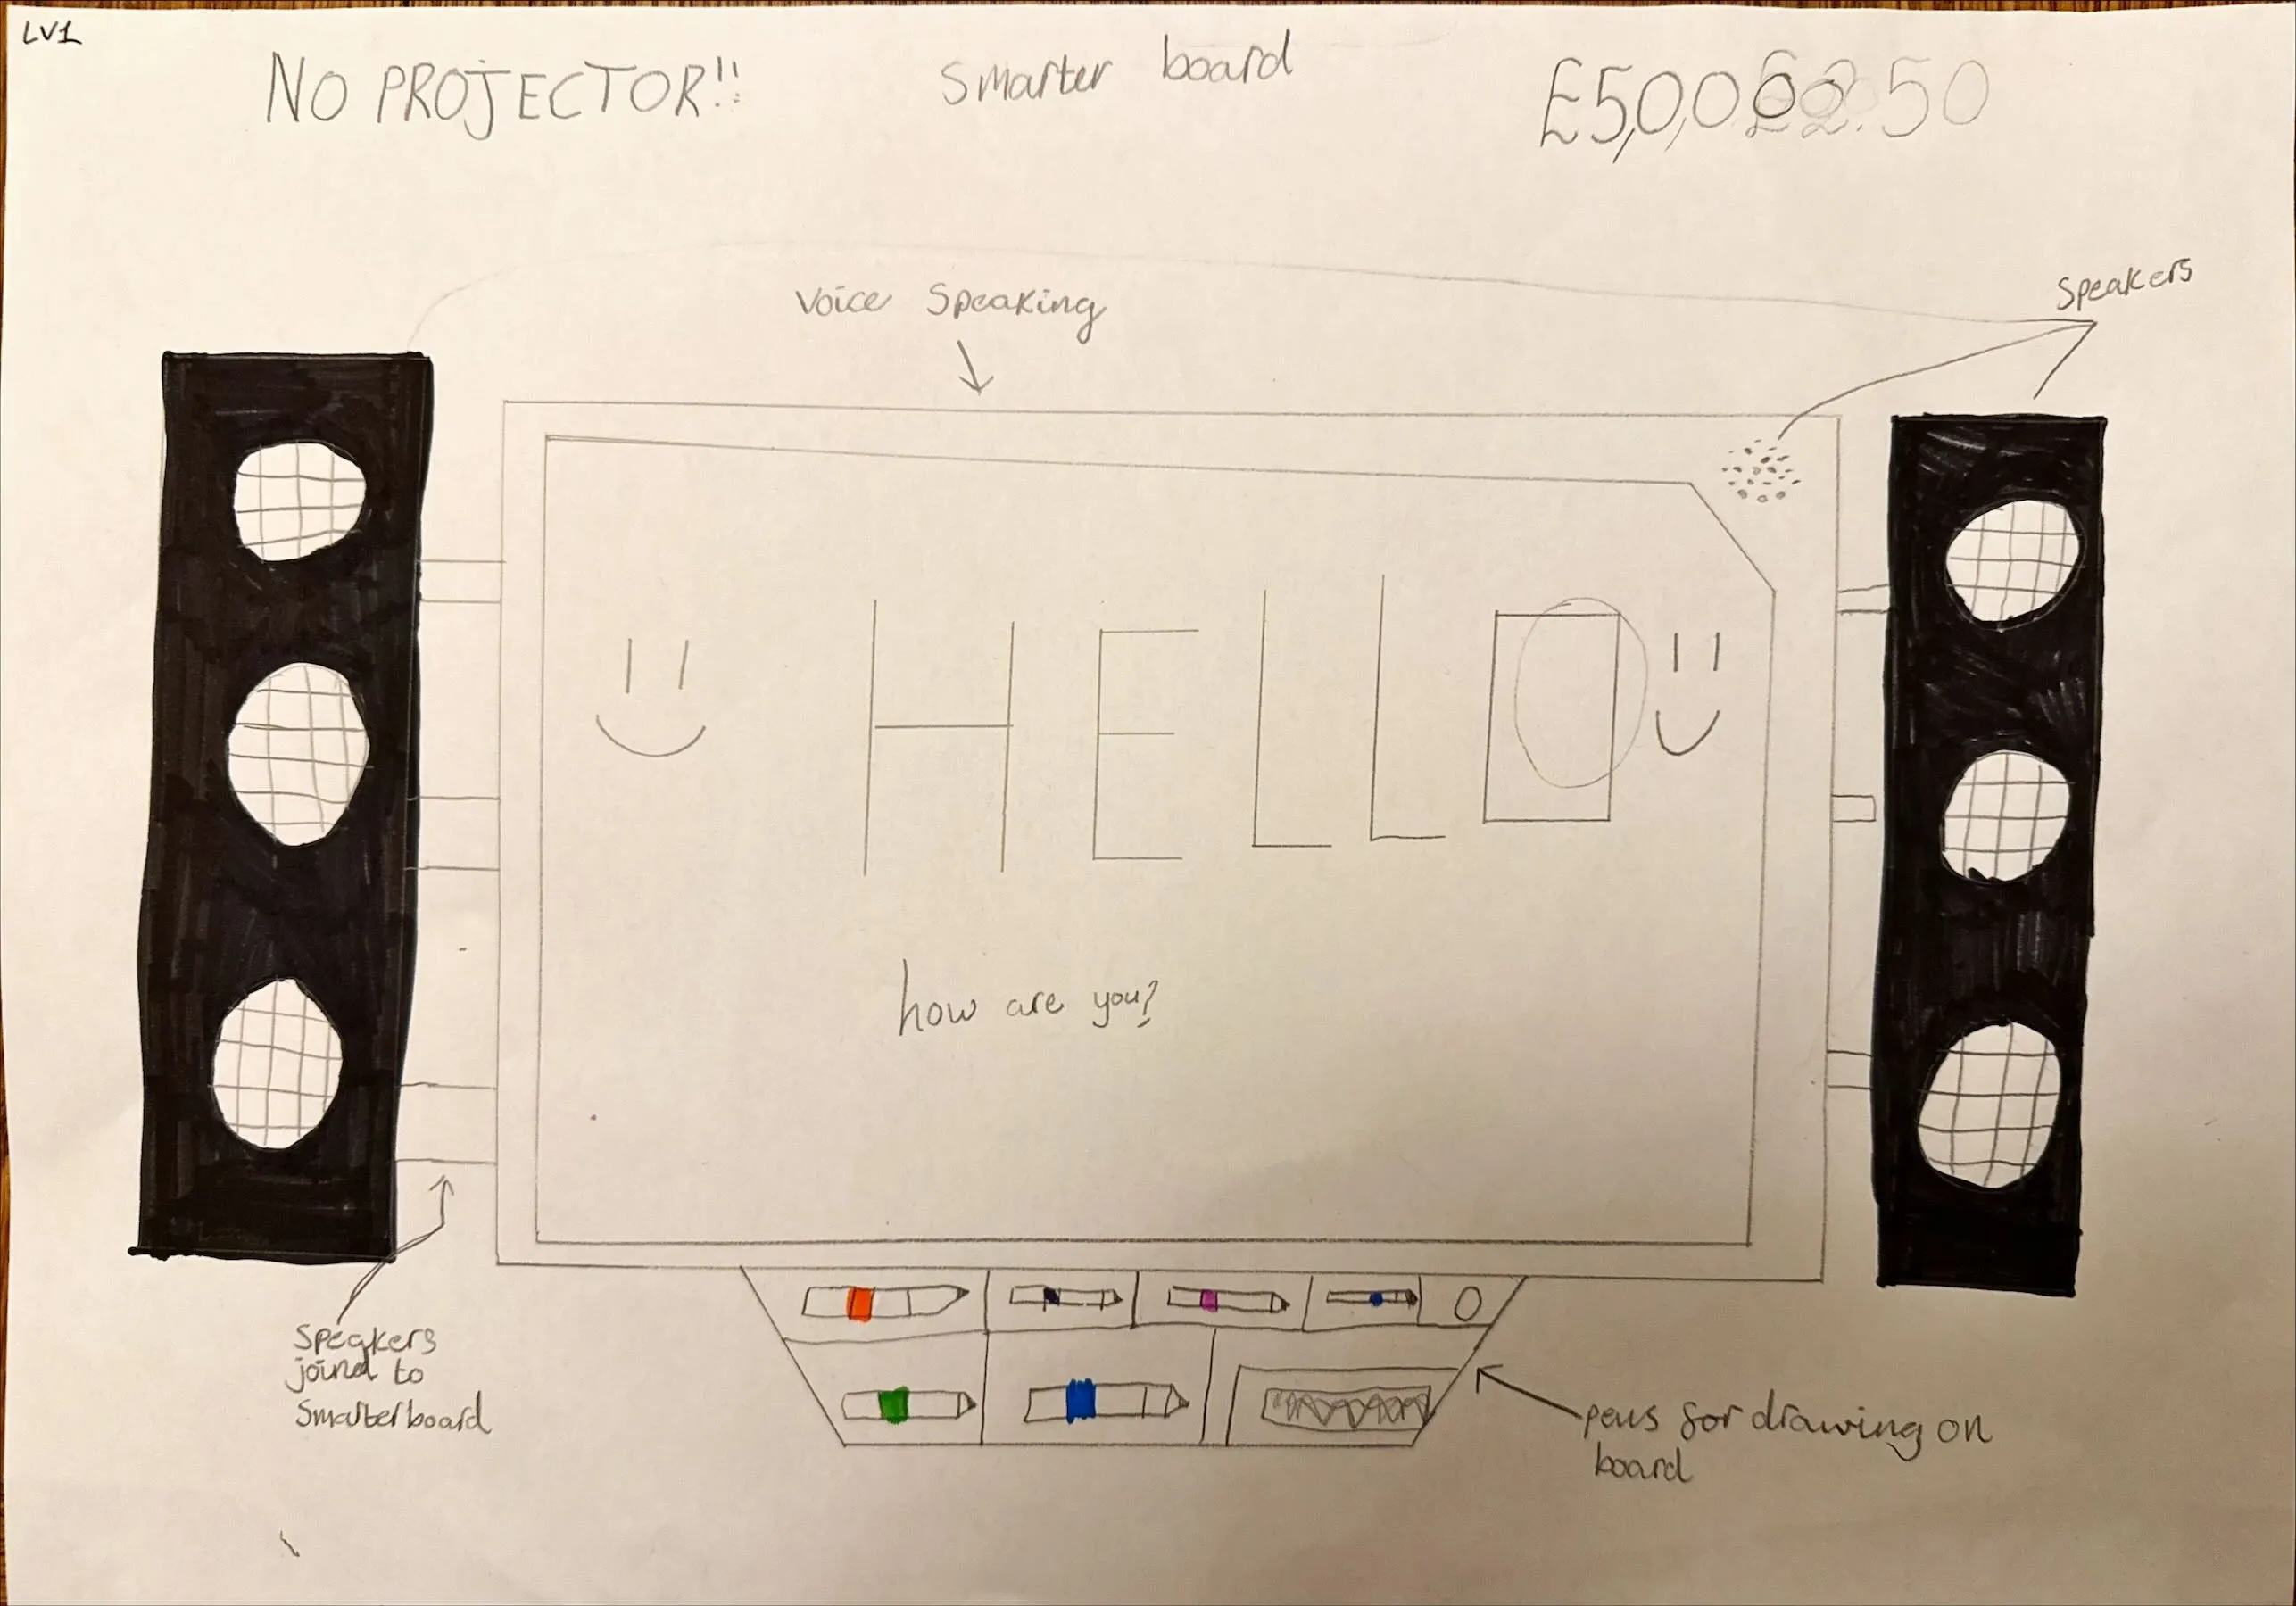 LV1
NO PROJECTOR!!
Smarter board
Voice Speaking
Speakers
HELLO
how are you?
Speakers
joind to
Smarterboard
pens for drawing on
board